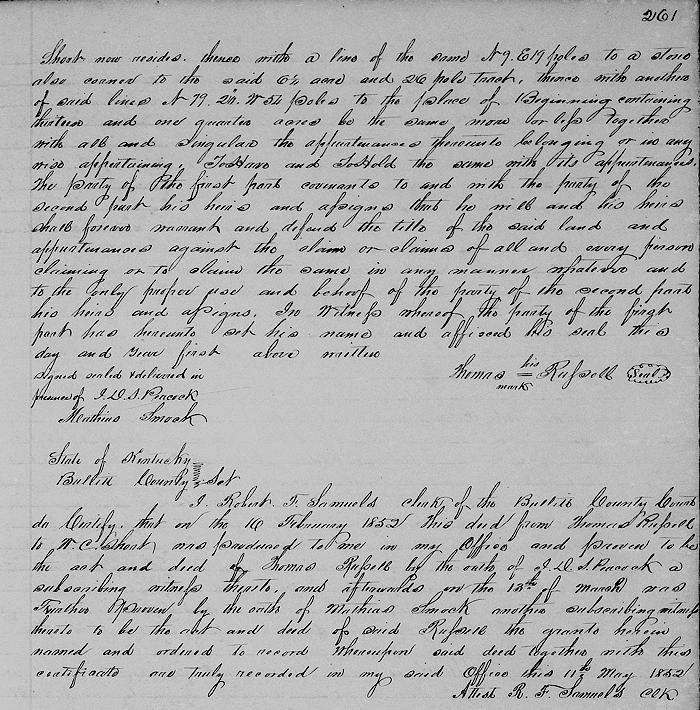 261
Short now resides. thence with a line of the same N 9. E 19 poles to a stone
also corner to the said 6½ acre and 26 pole tract, thence with another
of said lines N 79. 2¼. W 54 poles to the place of Beginning containing
thirteen and one quarter acres be the same more or less together
with all and singular the appurtenances thereunto belonging or in any
wise appertaining, To Have and To Hold the same with its appurtenances
The party of the first part covenants to and with the party of the
second part his heirs and assigns that he will and his heirs
shall forever warrant and defend the title of the said land and
appurtenances against the claim or claims of all and every person
claiming or to claim the same in any manner whatever and
to the only proper use and behoof of the party of the second part
his heirs and assigns. In Witness whereof the party of the first
part has hereunto set his name and affixed his seal this
day and Year first above written
signed sealed & delivered in
presence of J. D. S. Peacock
Mathias Smock
Thomas his = mark Russell Seal
State of Kentucky
Bullitt County Sct
I, Robert. F. Samuels clerk of the Bullitt County Court
do Certify. that on the 16 February 1852 This deed from Thomas Russell
to W. C. Short was produced to me in my Office and proven to be
the act and deed of Thomas Russell by the oath of J. D. S. Peacock a
subscribing witness thereto, and afterwards on the 15th of March was
further Proven by the oath of Mathias Smock another subscribing witness
thereto to be the act and deed of said Russell the grantor herein
named and ordered to record Whereupon said deed together with this
certificate are truly recorded in my said Office this 11th May 1852
Attest R. F. Samuels Clk